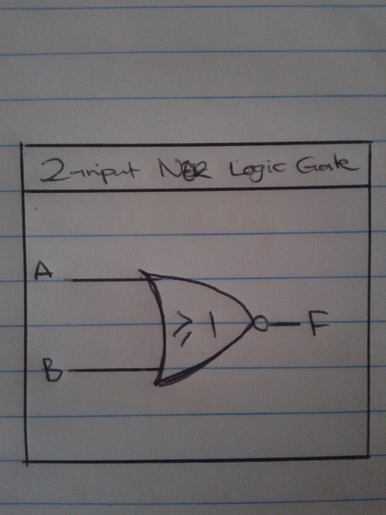 2-input NOR Logic Gate
A
≥ 1
F
B